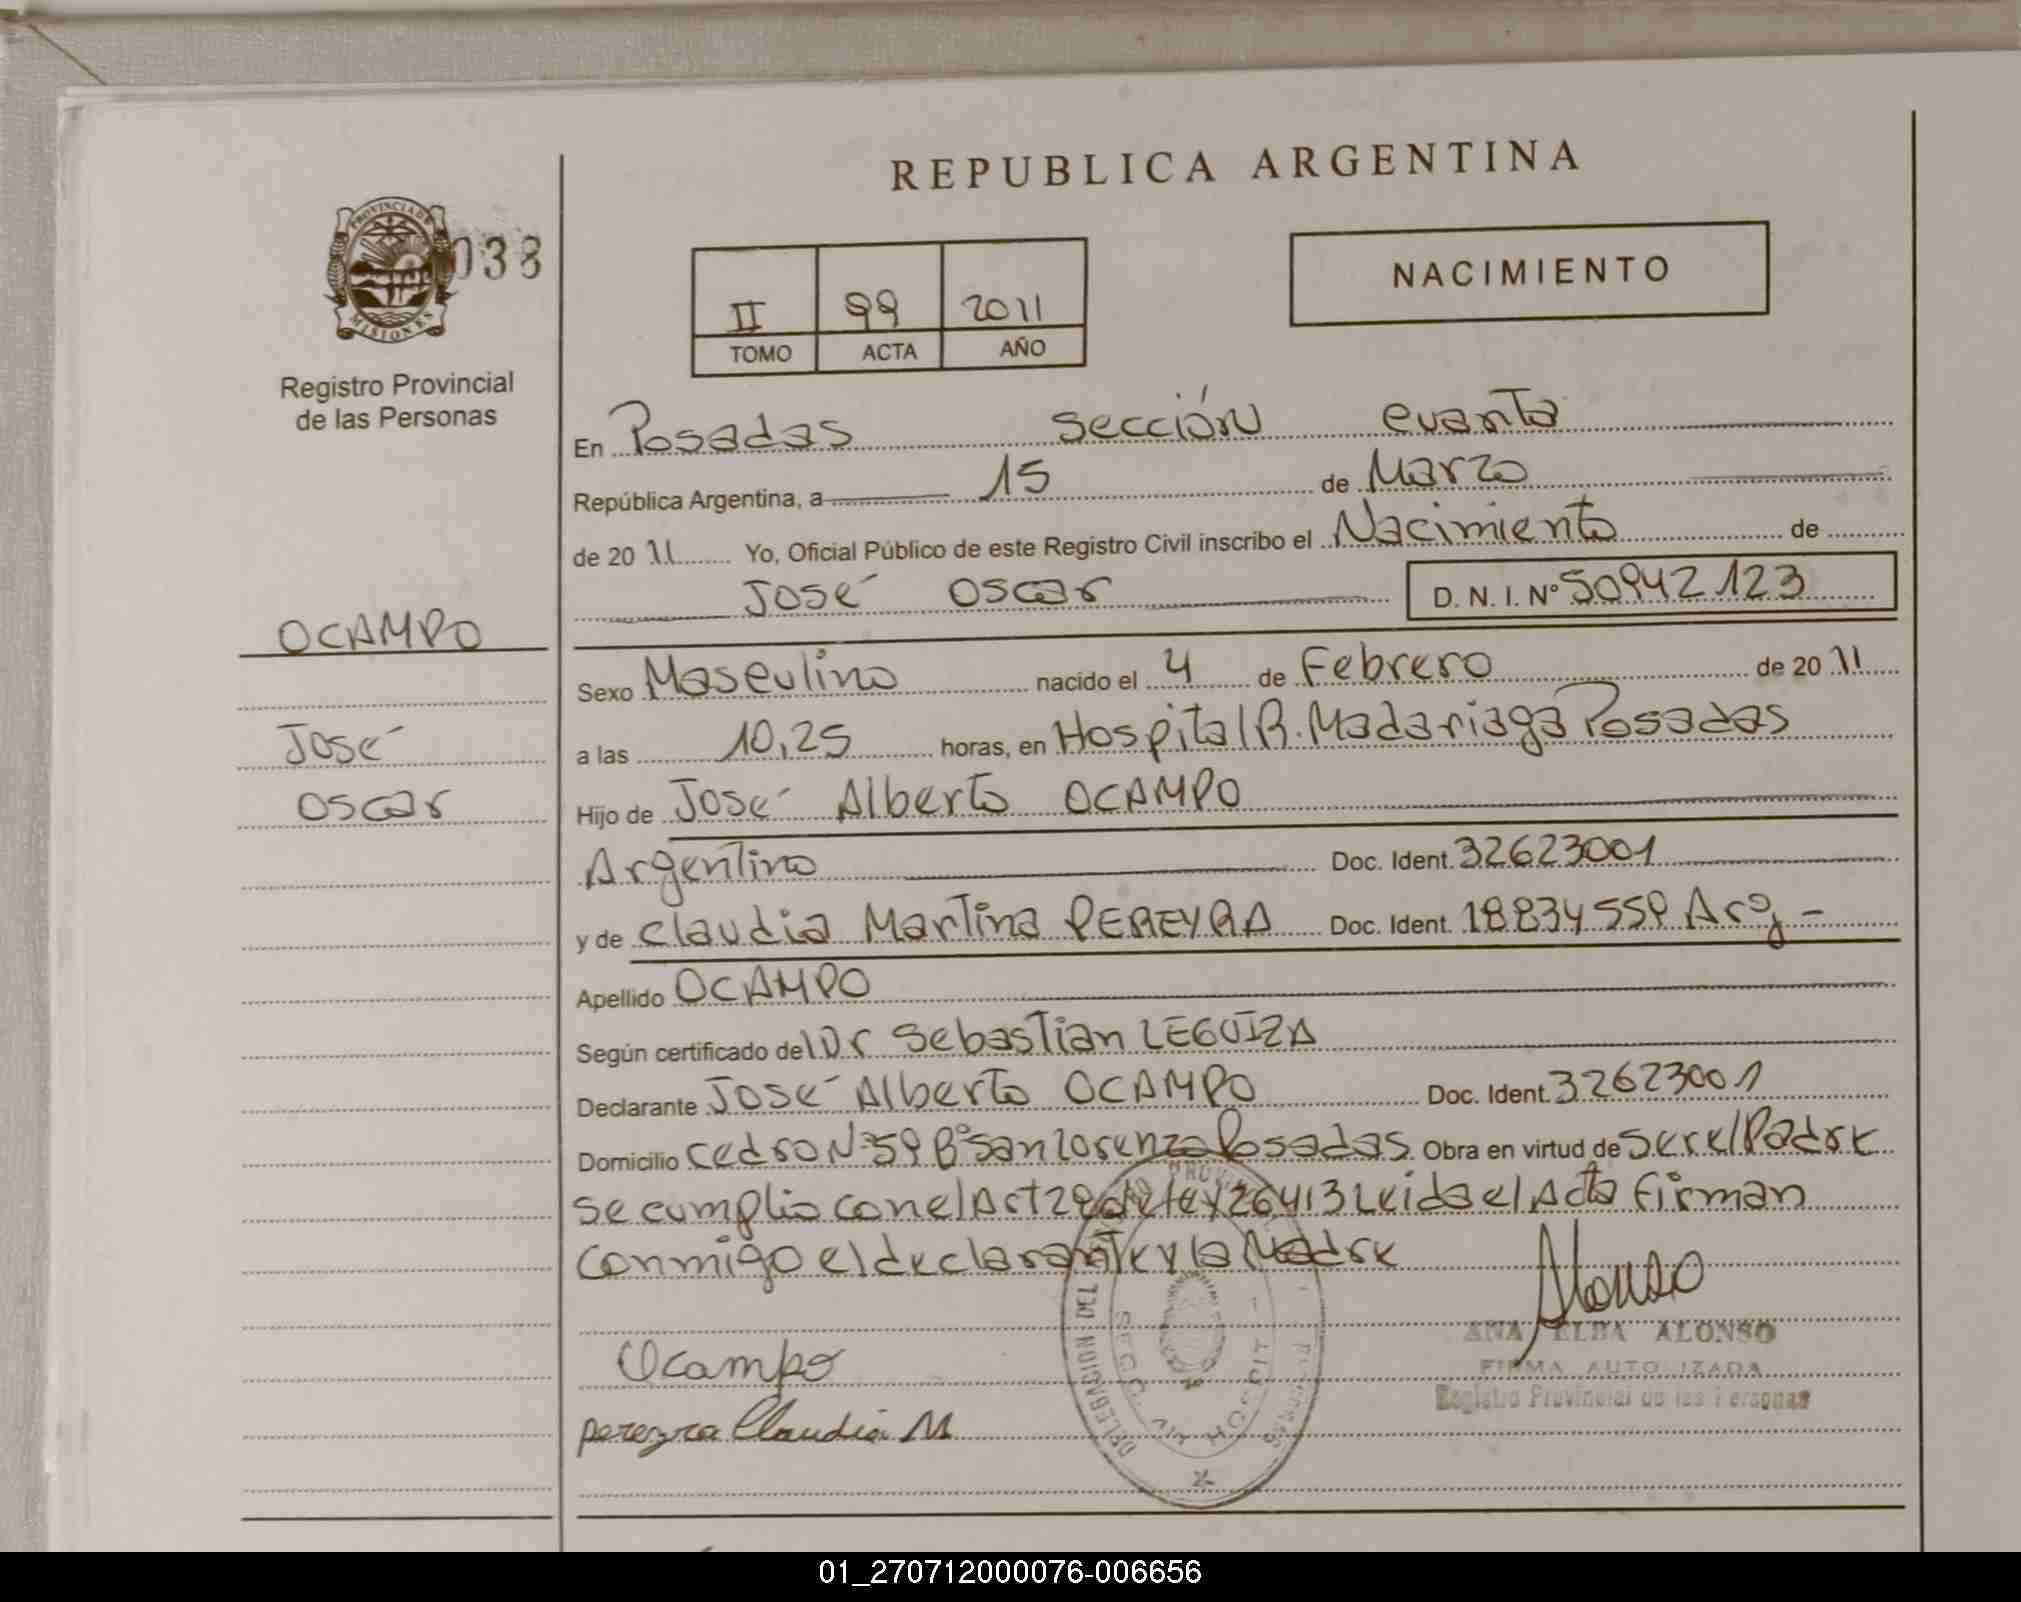 REPUBLICA ARGENTINA
PROVINCIA DE
MISIONES
038
Registro Provincial
de las Personas
II 99 2011
TOMO ACTA AÑO
NACIMIENTO
En Posadas sección cuarta
República Argentina, a 15 de Marzo
de 20 11 Yo, Oficial Público de este Registro Civil inscribo el Nacimiento de
José Oscar D. N. I. Nº 50942123
OCAMPO
José
Oscar
Sexo Masculino nacido el 4 de Febrero de 20 11
a las 10,25 horas, en Hospital R. Madariaga Posadas
Hijo de José Alberto OCAMPO
Argentino Doc. Ident. 32623001
y de Claudia Martina PEREYRA Doc. Ident. 18834559 Arg -
Apellido OCAMPO
Según certificado del Dr Sebastian LEGUIZA
Declarante José Alberto OCAMPO Doc. Ident. 32623001
Domicilio Cedro Nº 59 Bº San Lorenzo Posadas Obra en virtud de ser el Padre
se cumplio con el Art 29 de ley 26413 Leida el Acta Firman
conmigo el declarante y la Madre
Alonso
ANA ELBA ALONSO
FIRMA AUTORIZADA
Registro Provincial de las Personas
Ocampo
pereyra Claudia M
DELEGACION DEL
SECC.
HOSPIT
01_270712000076-006656